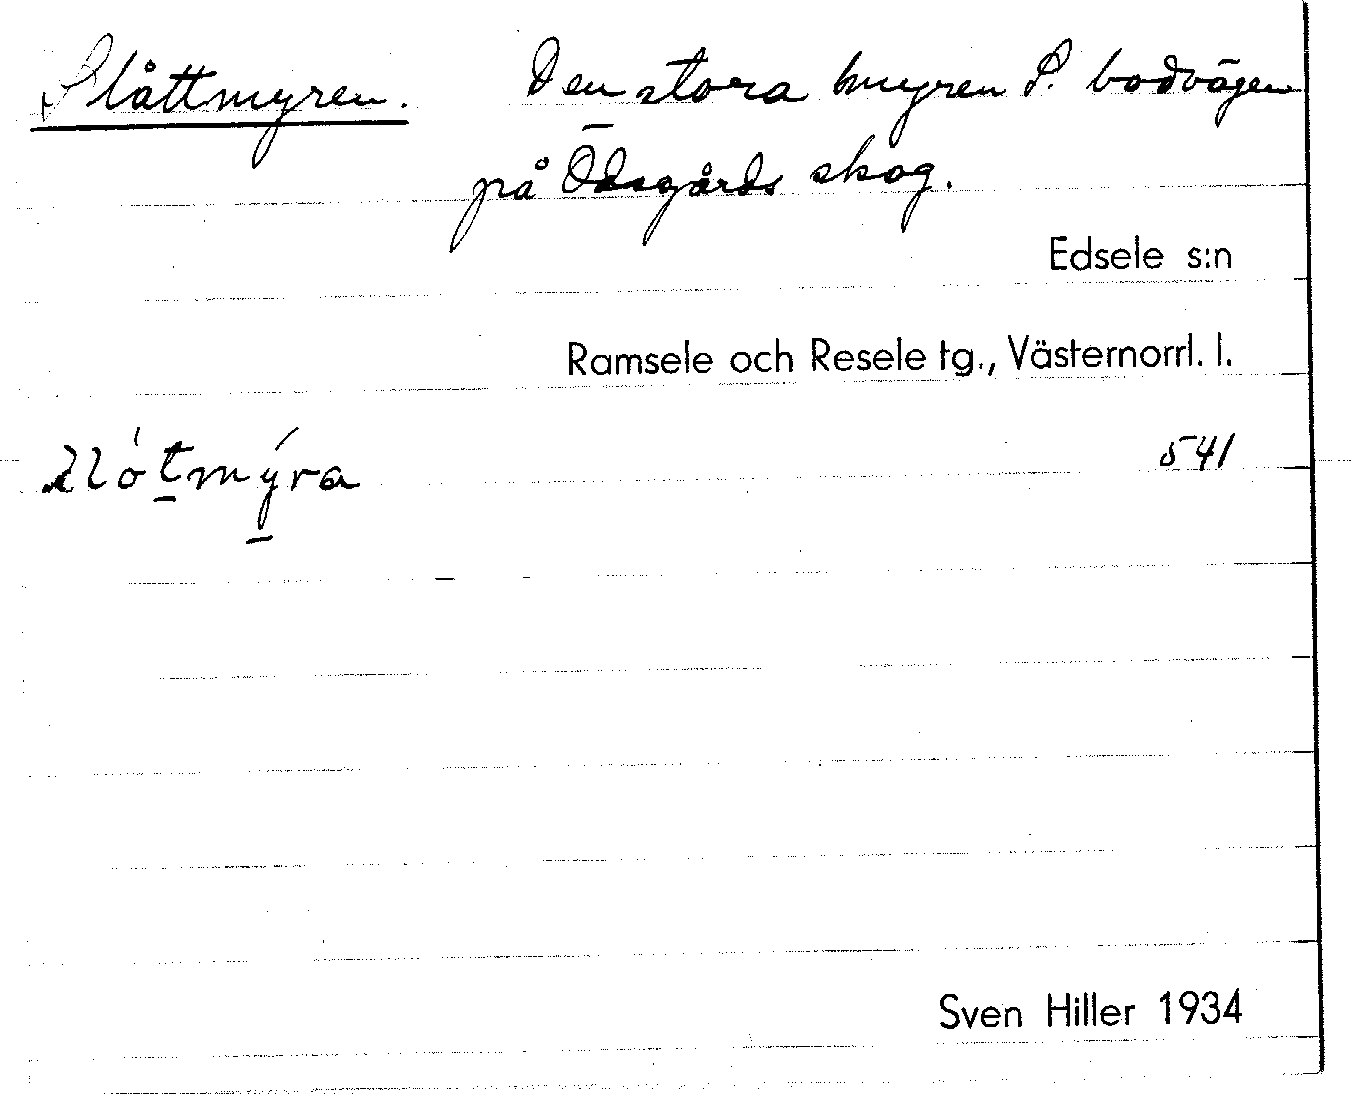 Slåttmyren. Den stora myren S. bodvägen
på Ödsgårds skog.
Edsele s:n
Ramsele och Resele tg., Västernorrl. l.
541
Sven Hiller 1934